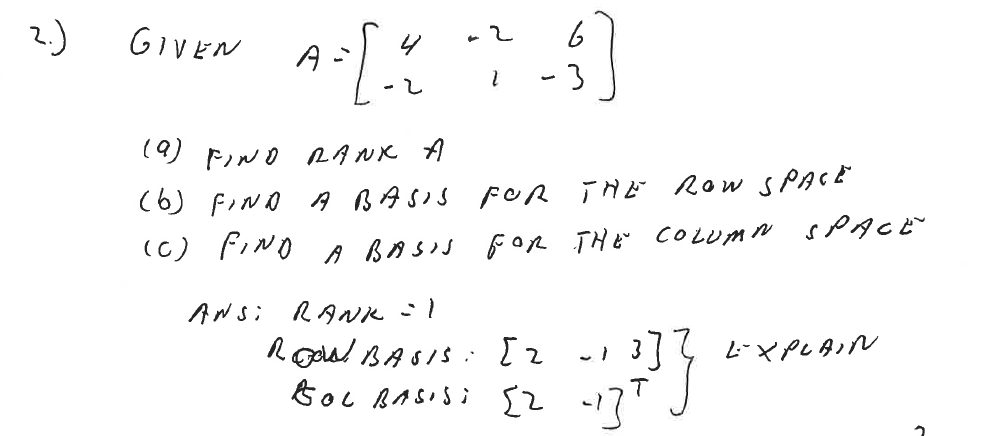 2.) GIVEN A = [ 4 -2 6
-2 1 -3 ]
(a) FIND RANK A
(b) FIND A BASIS FOR THE ROW SPACE
(c) FIND A BASIS FOR THE COLUMN SPACE
ANS: RANK = 1
ROW BASIS: [2 -1 3] } EXPLAIN
COL BASIS: [2 -1]ᵀ